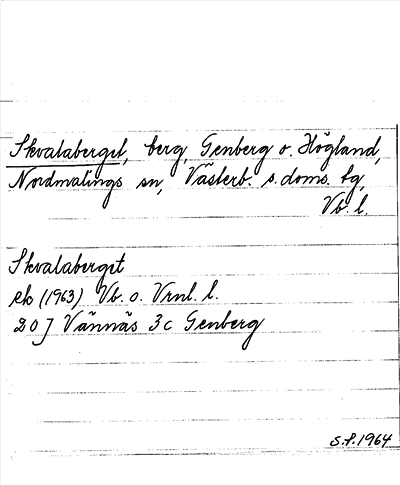 Skvalaberget, berg, Genberg o. Högland,
Nordmalings sn, Västerb. s. doms. tg,
Vb. l.
Skvalaberget
ek (1963) Vb. o. Vrnl. l.
20 J Vännäs 3c Genberg
S.F. 1964